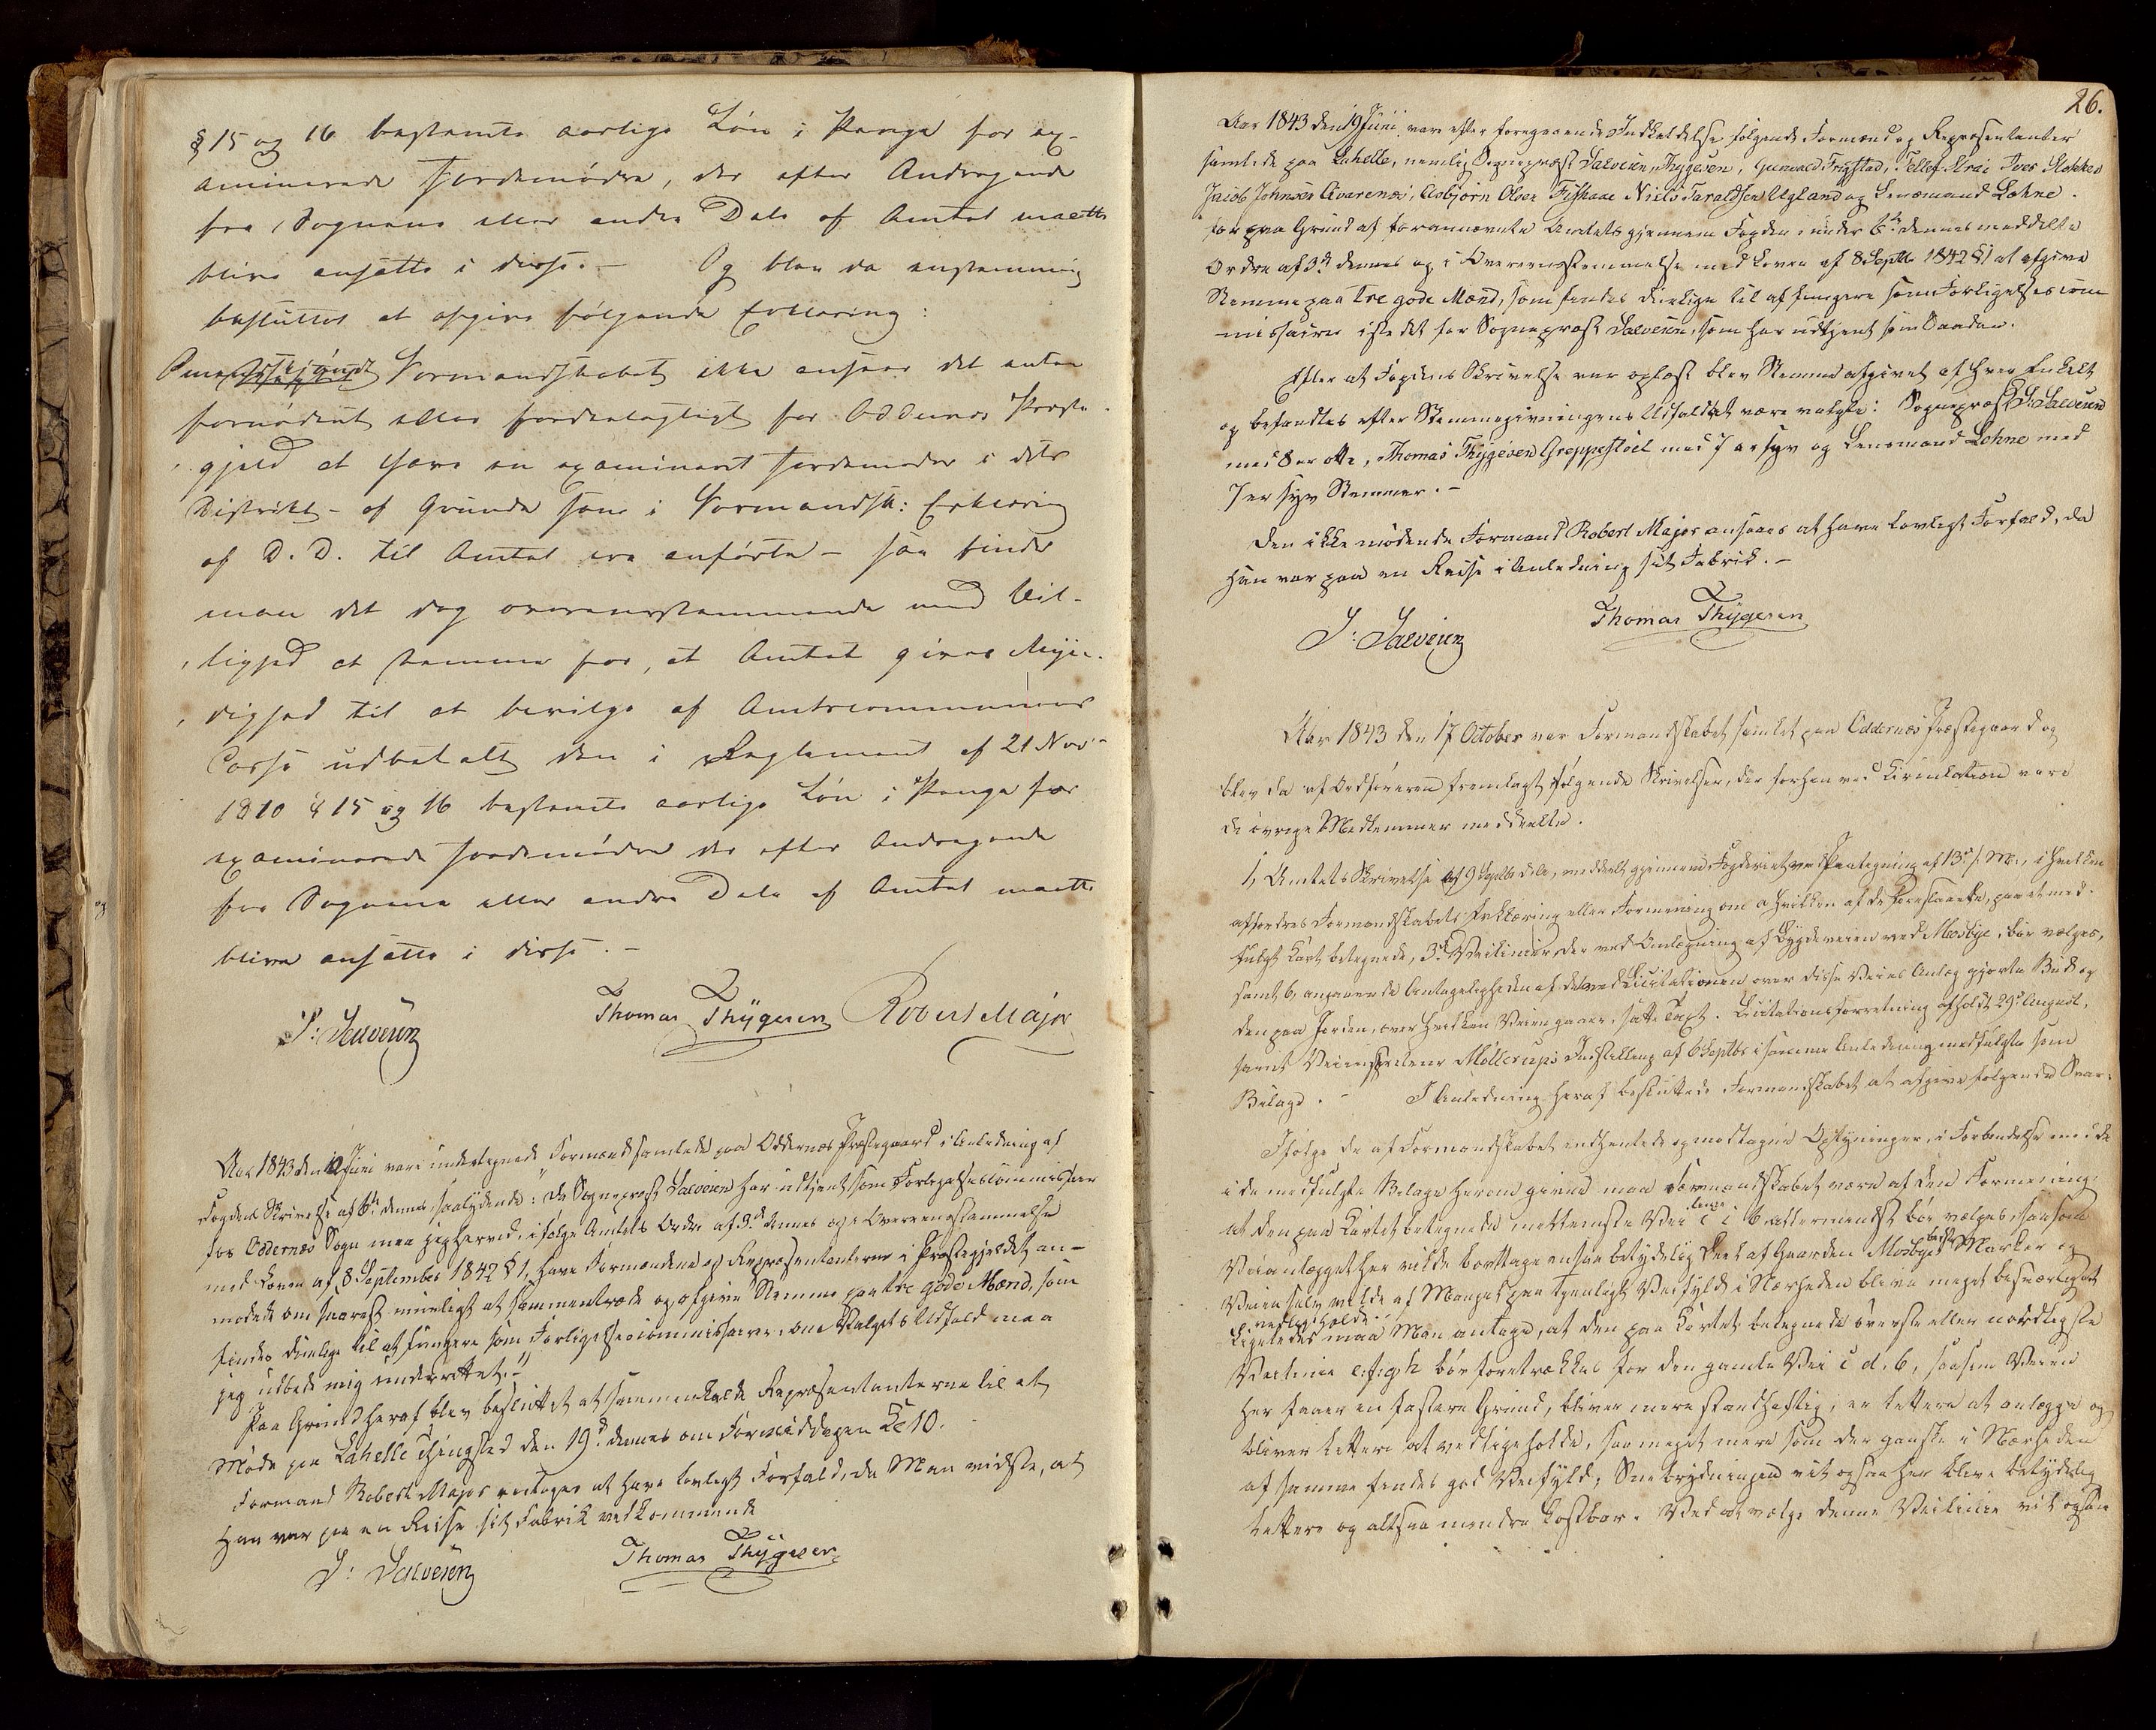 § 15 og 16 bestemte aarlige Løn i Penge for ex-
aminerede Jordemødre, der efter Andragende
fra Sognene eller andre Dele af Amtet maatte
blive ansatte i disse. - Og blev da enstemmig
besluttet at afgive følgende Erklæring:
Omendskjøndt Formandskabet ikke ansaae det enten
fornødent eller fordeelagtigt for Oddernes Præste-
gjeld at have en examineret Jordemoder i dets
Distrikt - af Grunde som i Formandsk: Erklæring
af D. D. til Amtet ere anførte - saa finder
man det dog overensstemmende med Bil-
lighed at stemme for, at Amtet gives Myn-
dighed til at bevilge af Amtscommunens
Casse udbetalt den i Reglement af 21 Nov
1810 § 15 og 16 bestemte aarlige Løn i Penge for
examinerede Jordemødre der efter Andragende
fra Sognene eller andre Dele af Amtet maatte
blive ansatte i disse. -
S: Salvesen Thomas Thygesen Robert Major
Aar 1843 den Juni vare undertegnede Formænd samlede paa Oddernes Præstegaard i Anledning af
Fogdens Skrivelse af 6te dennes saalydende: "Da Sognepræst Salvesen har udtjent som Forligelsescommissair
for Oddernes Sogn maa jeg herved, ifølge Amtets Ordre af 3de dennes og i Overensstemmelse
med Loven af 8 September 1842 § 1, have Formændene og Repræsentanterne i Præstegjeldet an-
modede om snarest mueligt at sammentræde og afgive Stemme paa tre gode Mænd, som
findes duelige til at fungere som Forligelsescommissairer, om Valgets Udfald maa
jeg udbede mig underrettet."
Paa Grund heraf blev besluttet at sammenkalde Repræsentanterne til et
Møde paa Lahelle Thingsted den 19de dennes om Formiddagen Kl 10.
Formand Robert Major antages at have lovligt Forfald, da Man vidste, at
han var paa en Reise sit Fabrik vedkommende
S: Salvesen Thomas Thygesen
26.
Aar 1843 den 19 Juni vare efter foregaaende Indkaldelse følgende Formænd og Repræsentanter
samlede paa Lahelle, nemlig Sognepræst Salvesen, Thygesen, Gunvald Frigstad, Tellef Krai Iver Stokken
Jacob Johnsen Qvarenes, Asbjørn Olsen Fiskaae Niels Taraldsen Ugland og Lensmand Lohne.
for paa Grund af forannævnte Amtets gjennem Fogden under 6te dennes meddelte
Ordre af 3de dennes og i Overensstemmelse med Loven af 8 Septb 1842 § 1 at afgive
Stemme paa tre gode Mænd, som findes duelige til at fungere som Forligelsescom-
missairer istedet for Sognepræst Salvesen, som har udtjent som Saadan.
Efter at Fogdens Skrivelse var oplæst blev Stemme afgivet af hver Enkelt
og befandtes efter Stemmegivningens Udfald at være valgte: Sognepræst S. Salvesen
med 8 er otte, Thomas Thygesen Greppestöel med 7 er syv og Lensmand Lohne med
7 er syv Stemmer. -
Den ikke mødende Formand Robert Major ansaaes at have lovligt Forfald, da
han var paa en Reise i Anledning sit Fabrik. -
S: Salvesen Thomas Thygesen
Aar 1843 den 17 October var Formandskabet samlet paa Oddernes Præstegaard og
blev da af Ordføreren fremlagt følgende Skrivelser, der forhen ved Cirkulation vare
de øvrige Medlemmer meddeelte.
1, Amtets Skrivelse af 9 Septb dette, meddeelt gjennem Fogderiet ved Paategning af 13de s. M., i hvilken
affordres Formandskabets Erklæring eller Formening om a hvilken af de foreslaaede, paa et med-
fulgt Kart betegnede, 3de Veilinier, der ved Anlægning af Bygdeveien ved Mosbye, bør vælges,
samt b, angaaende Antageligheden af det ved Licitationen over disse Veies Anlæg gjorte Bud og
den paa Jorden, over hvilken Veien gaaer, satte Taxt. Licitationsforretning afholdt 29de August,
samt Veiinspecteur Möllerups Indstilling af 6 Septbr i samme Anledning medfulgte som
Bilage. - I Anledning heraf besluttede Formandskabet at afgive følgende Svar:
Ifølge de af Formandskabet indhentede og modtagne Oplysninger, i Forbindelse med de
i de medfulgte Bilage herom givne maa Formandskabet være af den Formening,
at den paa Kartet betegnede mellemste Vei linie c i b allermindst bør vælges, saasom
Veianlægget her vilde borttage en saa betydelig Deel af Gaarden Mosbyes bedste Marker og
Veien selv vilde af Mangel paa tjenligt Veifyld i Nærheden blive meget besværlig at
vedligeholde.
Ligeledes maa Man antage, at den paa Kartet betegnede øverste eller nordligste
Veilinie e.f.g.h bør foretrækkes for den gamle Vei c d. b, saasom Veien
her faaer en fastere Grund, bliver mere standhaftig, er lettere at anlægge og
bliver lettere at vedligeholde, saa meget mere som der ganske i Nærheden
af samme findes god Veifyld; Snebrydningen vil ogsaa her blive betydelig
lettere og altsaa mindre kostbar. Ved at vælge denne Veilinie vil ogsaa